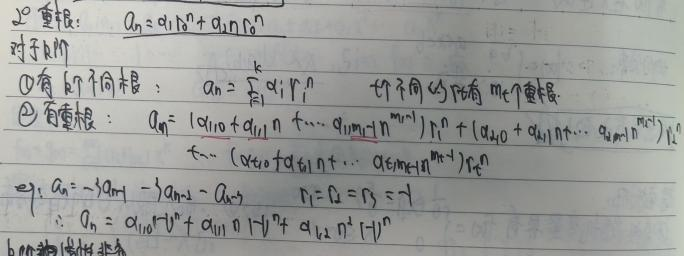 2° 重根: aₙ = α₁r₀ⁿ + α₂n r₀ⁿ
对于k阶
①有k个不同根: aₙ = Σᵢ₌₁ᵏ αᵢrᵢⁿ t个不同的rt有mt个重根.
②有重根: aₙ = (α₁,₀ + α₁,₁n + … α₁,m₁-₁n^(m₁-1)) r₁ⁿ + (α₂,₀ + α₂,₁n + … α₂,m₂-₁n^(m₂-1)) r₂ⁿ
+ … (αt,₀ + αt,₁n + … αt,mt-₁n^(mt-1)) rtⁿ
eg: aₙ = -3aₙ₋₁ - 3aₙ₋₂ - aₙ₋₃ r₁ = r₂ = r₃ = -1
∴ aₙ = α₁,₀(-1)ⁿ + α₁,₁n(-1)ⁿ + α₁,₂n²(-1)ⁿ